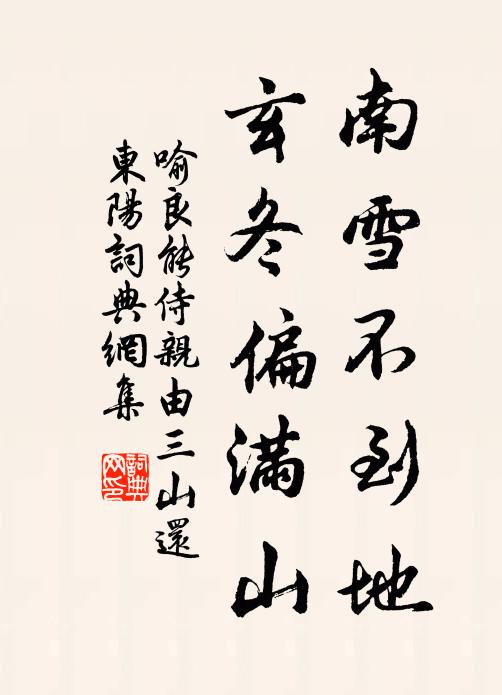 南雪不到地
玄冬偏满山
喻良能侍親由三山還
東陽詞典網集
詞典
网印